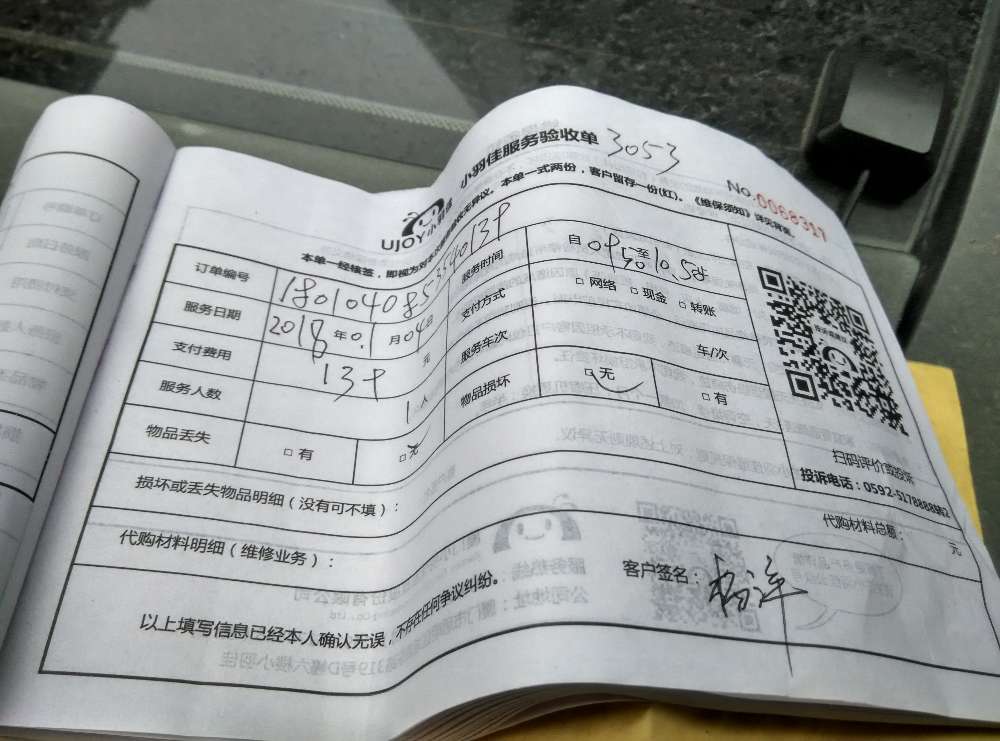 小羽佳服务验收单 3053
No.0068311
UJOY小羽佳
本单一经核签，即视为对本次服务验收无异议。本单一式两份，客户留存一份(红)。《维保须知》详见背面。
订单编号
服务时间 自 09:50 至 10:50
服务日期 2018年01月04日
支付方式 □网络 □现金 □转账
支付费用 元
服务车次 车/次
服务人数 1人
物品损坏 □无 □有
物品丢失 □有 □无
扫码评价或投诉
投诉电话：0592-5178888
损坏或丢失物品明细（没有可不填）：
代购材料明细（维修业务）：
代购材料总额： 元
以上填写信息已经本人确认无误，不存在任何争议纠纷。
客户签名：